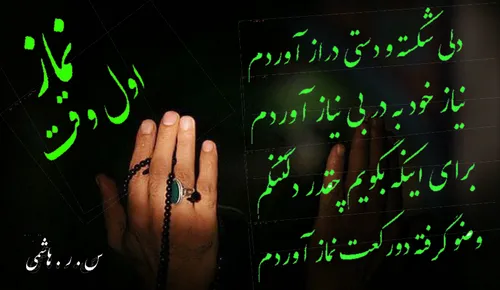 نماز
اول وقت
دلی شکسته و دستی دراز آوردم
نیاز خود به در بی نیاز آوردم
برای اینکه بگویم چقدر دلتنگم
وضو گرفته دو رکعت نماز آوردم
س . ر . هاشمی